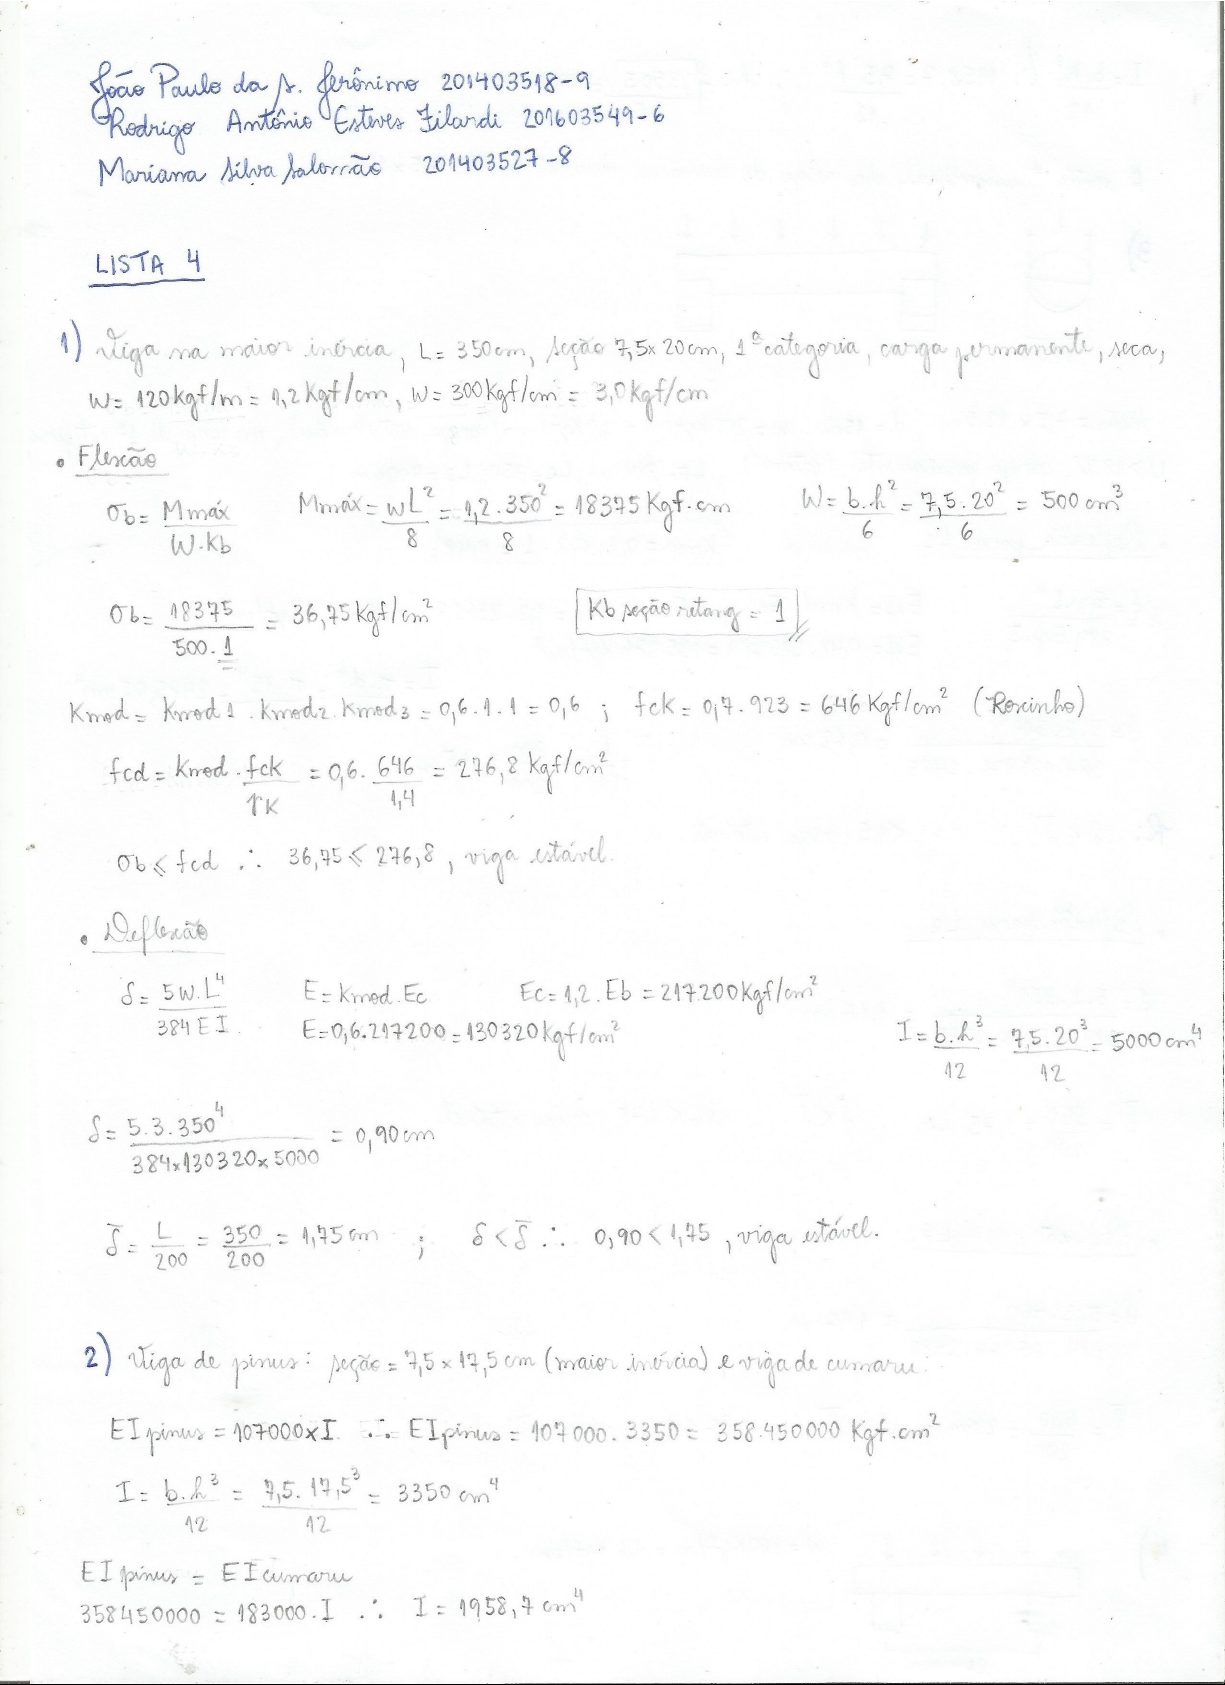 João Paulo da S. Jerônimo 201403518-9
Rodrigo Antônio Esteves Filardi 201603549-6
Mariana Silva Salomão 201403527-8
LISTA 4
1) Viga na maior inércia, L= 350cm, seção 7,5x20cm, 1ª categoria, carga permanente, seca,
W= 120kgf/m = 1,2 Kgf/cm, W= 300kgf/cm = 3,0kgf/cm
• Flexão
σb= Mmáx / W.Kb   Mmáx= wL² / 8 = 1,2.350² / 8 = 18375 Kgf.cm   W= b.h² / 6 = 7,5.20² / 6 = 500 cm³
σb= 18375 / 500.1 = 36,75 Kgf/cm²   Kb seção retang = 1
Kmod= Kmod1 . Kmod2 . Kmod3 = 0,6.1.1 = 0,6 ; fck= 0,7.923 = 646 Kgf/cm² (Roxinho)
fcd= Kmod . fck / γk = 0,6. 646 / 1,4 = 276,8 Kgf/cm²
σb ⩽ fcd ∴ 36,75 ⩽ 276,8, viga estável.
• Deflexão
δ= 5W.L⁴ / 384EI   E= Kmod.Ec   Ec= 1,2.Eb = 217200Kgf/cm²
E=0,6.217200=130320kgf/cm²   I= b.h³ / 12 = 7,5.20³ / 12 = 5000 cm⁴
δ= 5.3.350⁴ / 384x130320x5000 = 0,90cm
δ̅= L / 200 = 350 / 200 = 1,75cm ; δ < δ̅ ∴ 0,90 < 1,75, viga estável.
2) Viga de pinus: seção = 7,5x17,5cm (maior inércia) e viga de cumaru:
EI pinus = 107000xI ∴ EI pinus = 107000.3350 = 358.450000 Kgf.cm²
I= b.h³ / 12 = 7,5.17,5³ / 12 = 3350 cm⁴
EI pinus = EI cumaru
358450000 = 183000.I ∴ I= 1958,7 cm⁴